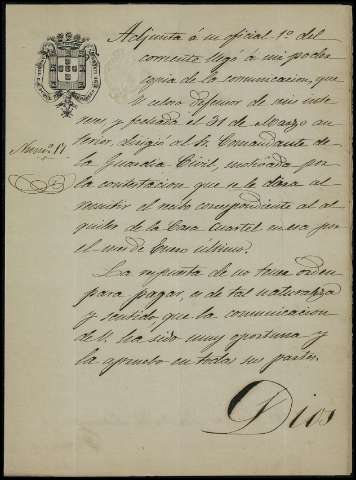 Adjunta á su oficial 1º del
corriente llegó á mi poder
copia de la comunicacion, que
V. celoso defensor de mis inte
reses y fechada el 31 de Marzo an
terior, dirigió al Sr. Comandante de
Num.º 11
la Guardia Civil, motivada por
la contestacion que se le diera al
remitir el recibo correspondiente al al
quiler de la Casa Cuartel en esa por
el mes de Enero último.
La respuesta de no tener orden
para pagar, es de tal naturaleza
y sentido que la comunicacion
de V. ha sido muy oportuna y
la apruebo en todas sus partes.
Dios